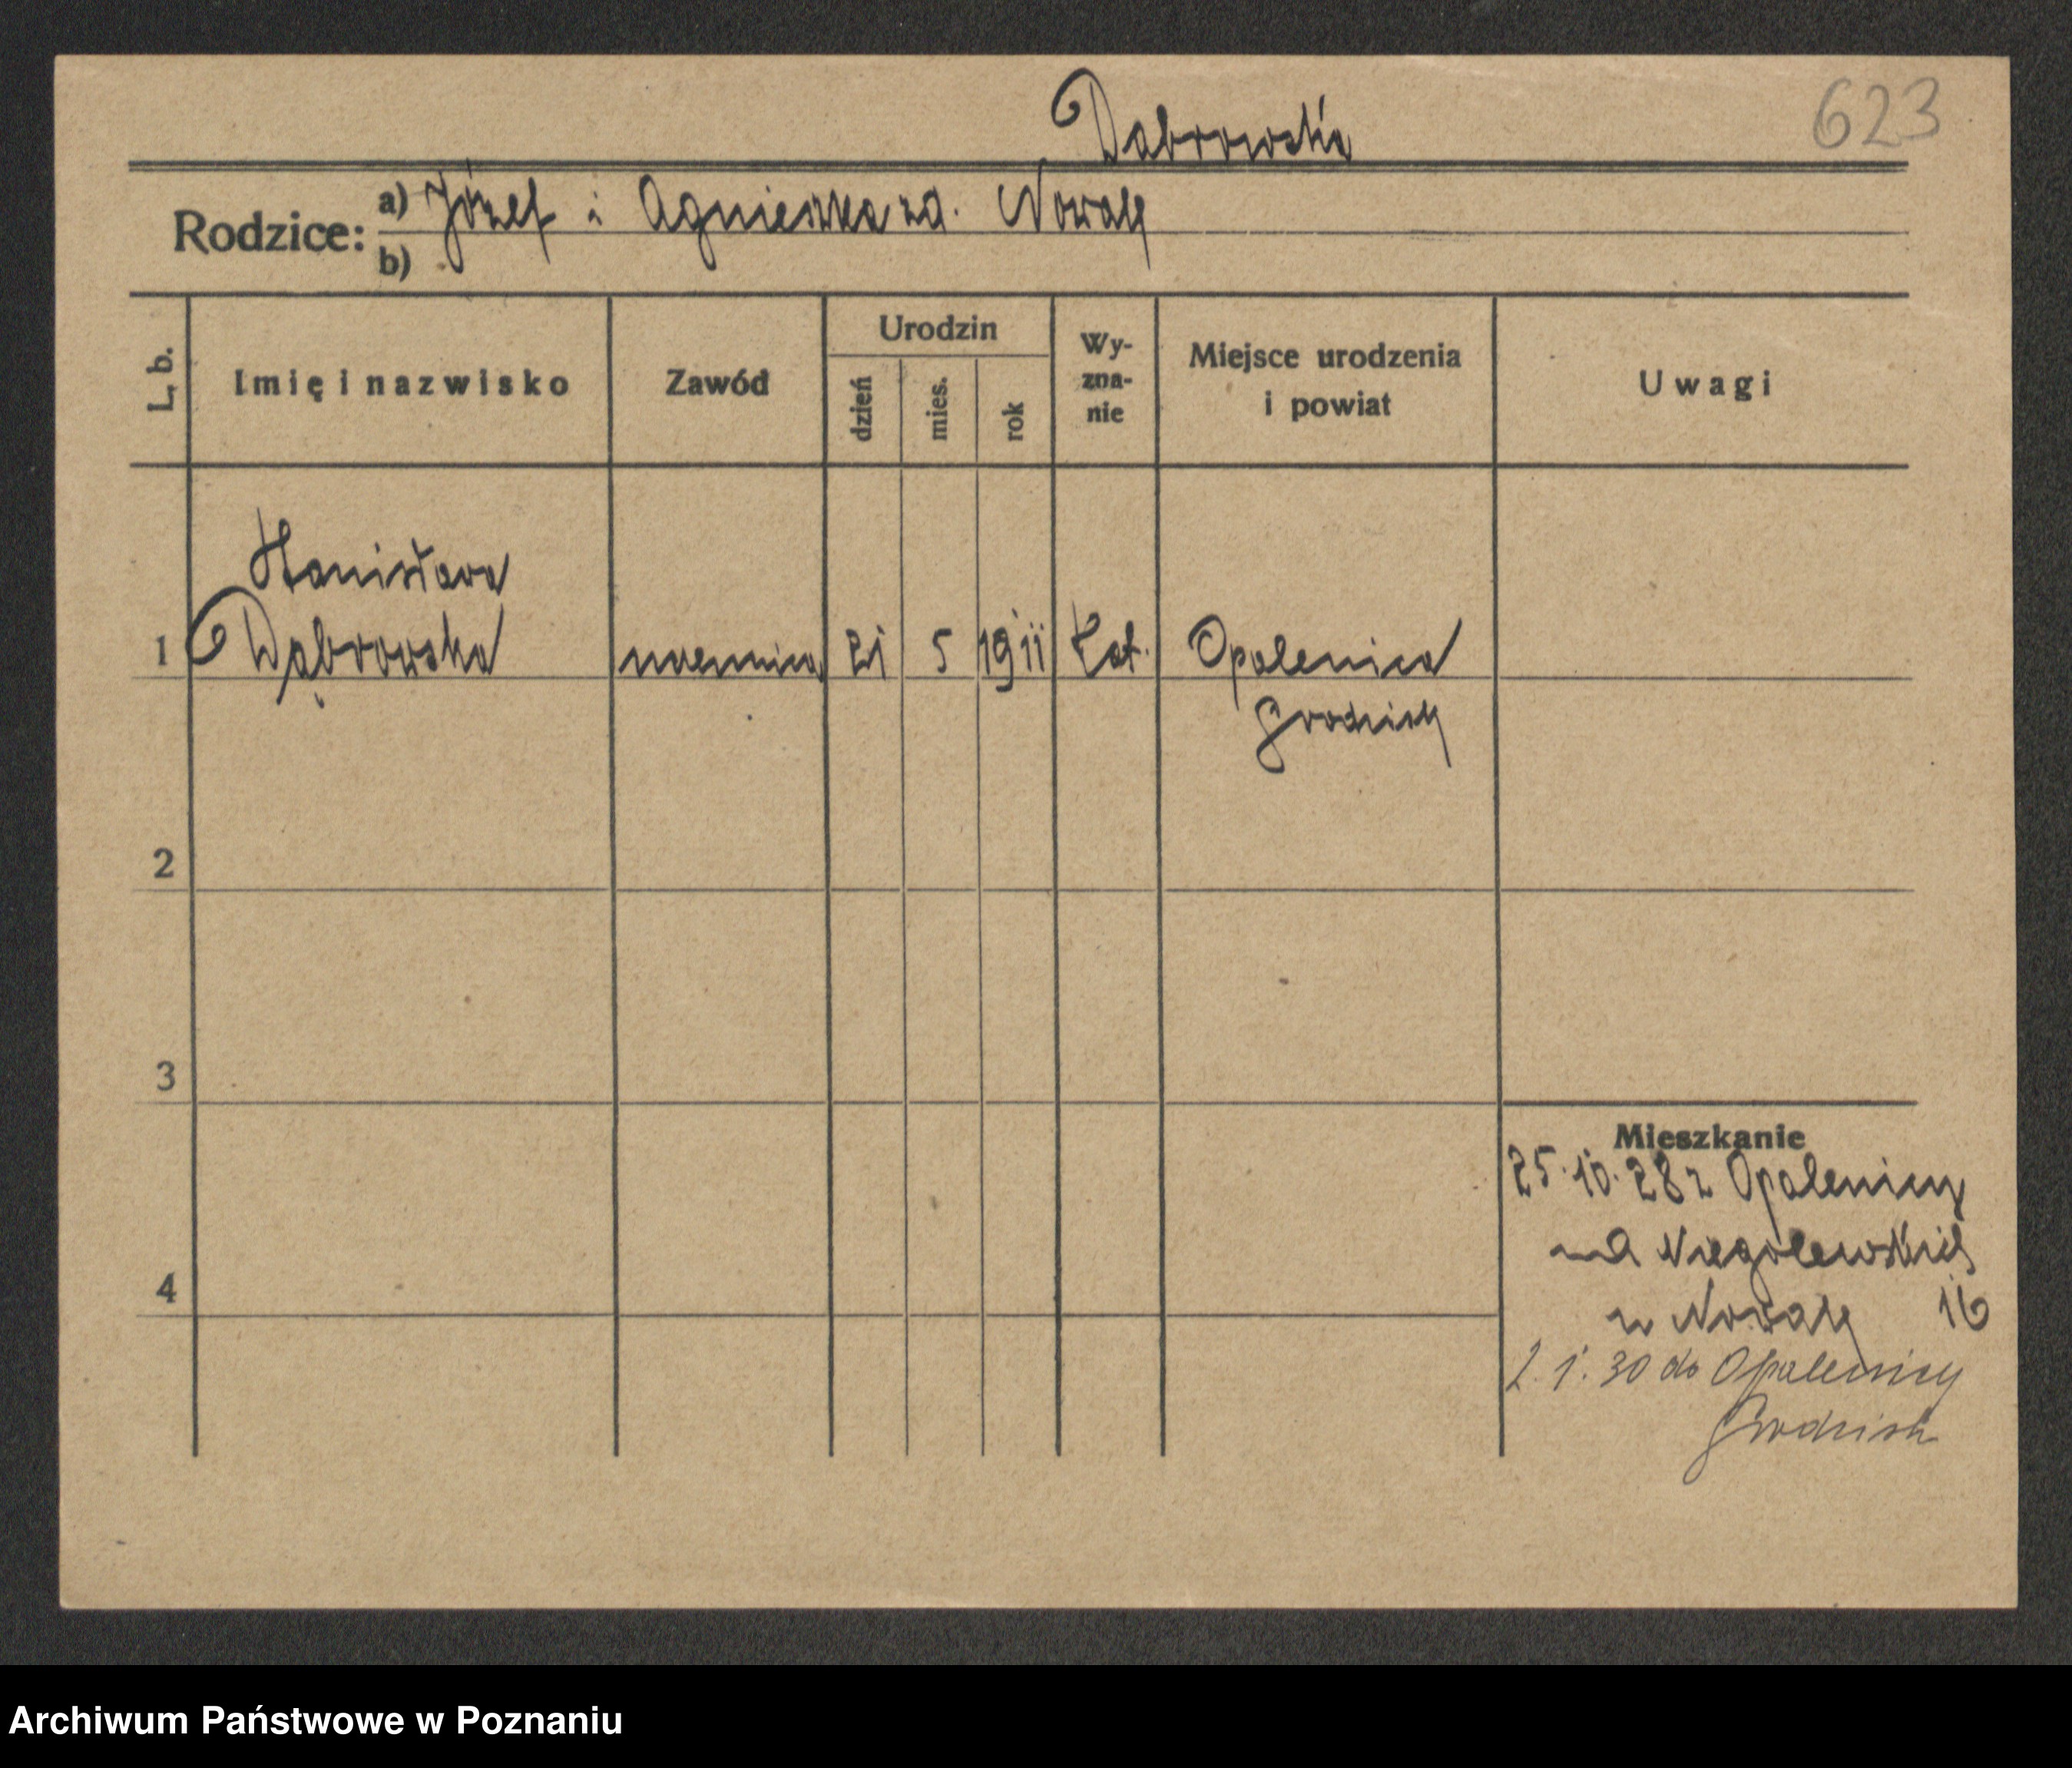 623
Dąbrowska
Rodzice: a) Józef i Agnieszka zd. Nowak
b)
L. b.
Imię i nazwisko
Zawód
Urodzin
dzień
mies.
rok
Wy-
zna-
nie
Miejsce urodzenia
i powiat
Uwagi
Stanisława
1 Dąbrowska uczennica 21 5 1911 kat. Opalenica
Grodzisk
2
3
4
Mieszkanie
25.10.28 z Opalenicy
na Niegolewskich
u Nowak 16
2.1.30 do Opalenicy
Grodzisk
Archiwum Państwowe w Poznaniu